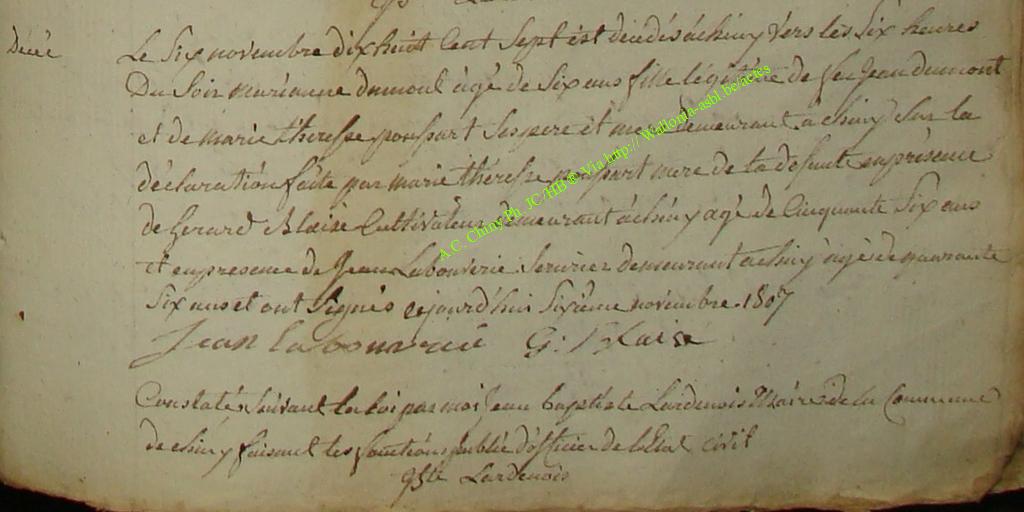 Décé
Le Six novembre dix huit Cent Sept est decedés à chiny vers les Six heures
Du Soir marianne dumont âgé de Six ans fille légitime de feu Jean dumont
et de marie therese poupart Ses pere et mere demeurant a chiny Sur la
déclaration faite par marie thérèse poupart mere de la defunte en présence
de Gerard Blaise Cultivateur demeurant à chiny agé de Cinquante Six ans
et en presence de Jean Labouverie Serurier demeurant a chiny âgé de quarante
Six ans et ont Signés cejourd'hui Sixième novembre 1807
Jean labouverie G: Blaise
Constaté Suivant la loi par moi Jean baptiste Lardenois Maire de la Commune
de chiny faisant les fonctions public d'officier de l'Etat civil
Lardenois
A.C. Chiny Ph. JC/HB © Via http://Wallonia-asbl.be/actes